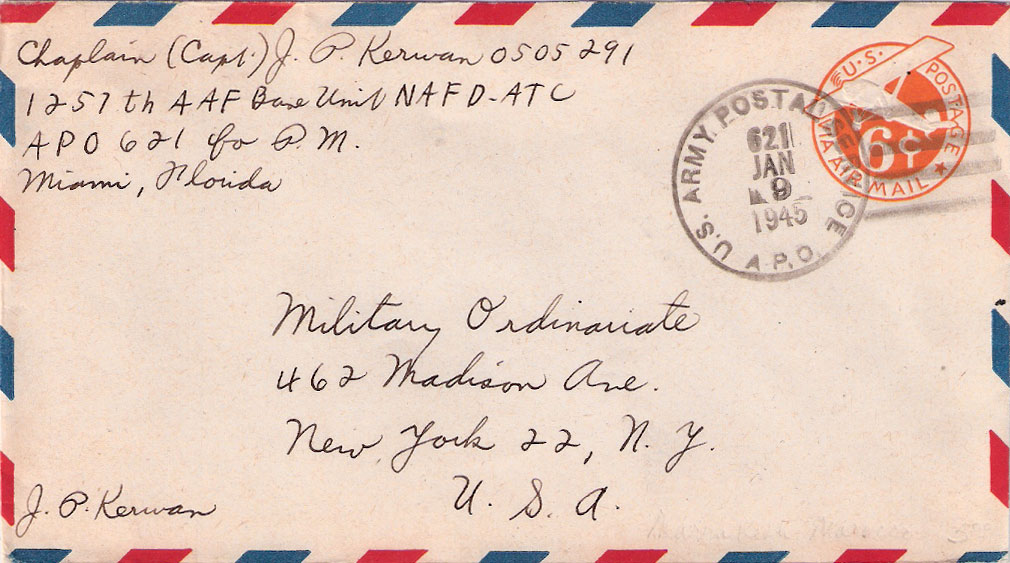 Chaplain (Capt.) J. P. Kerwan 0505291
1257th AAF Base Unit NAFD-ATC
APO 621 c/o P.M.
Miami, Florida
U.S. POSTAGE
6¢
VIA AIR MAIL
U.S. ARMY POSTAL SERVICE
621
JAN
9
1945
A.P.O.
Military Ordinariate
462 Madison Ave.
New York 22, N. Y.
U. S. A.
J. P. Kerwan